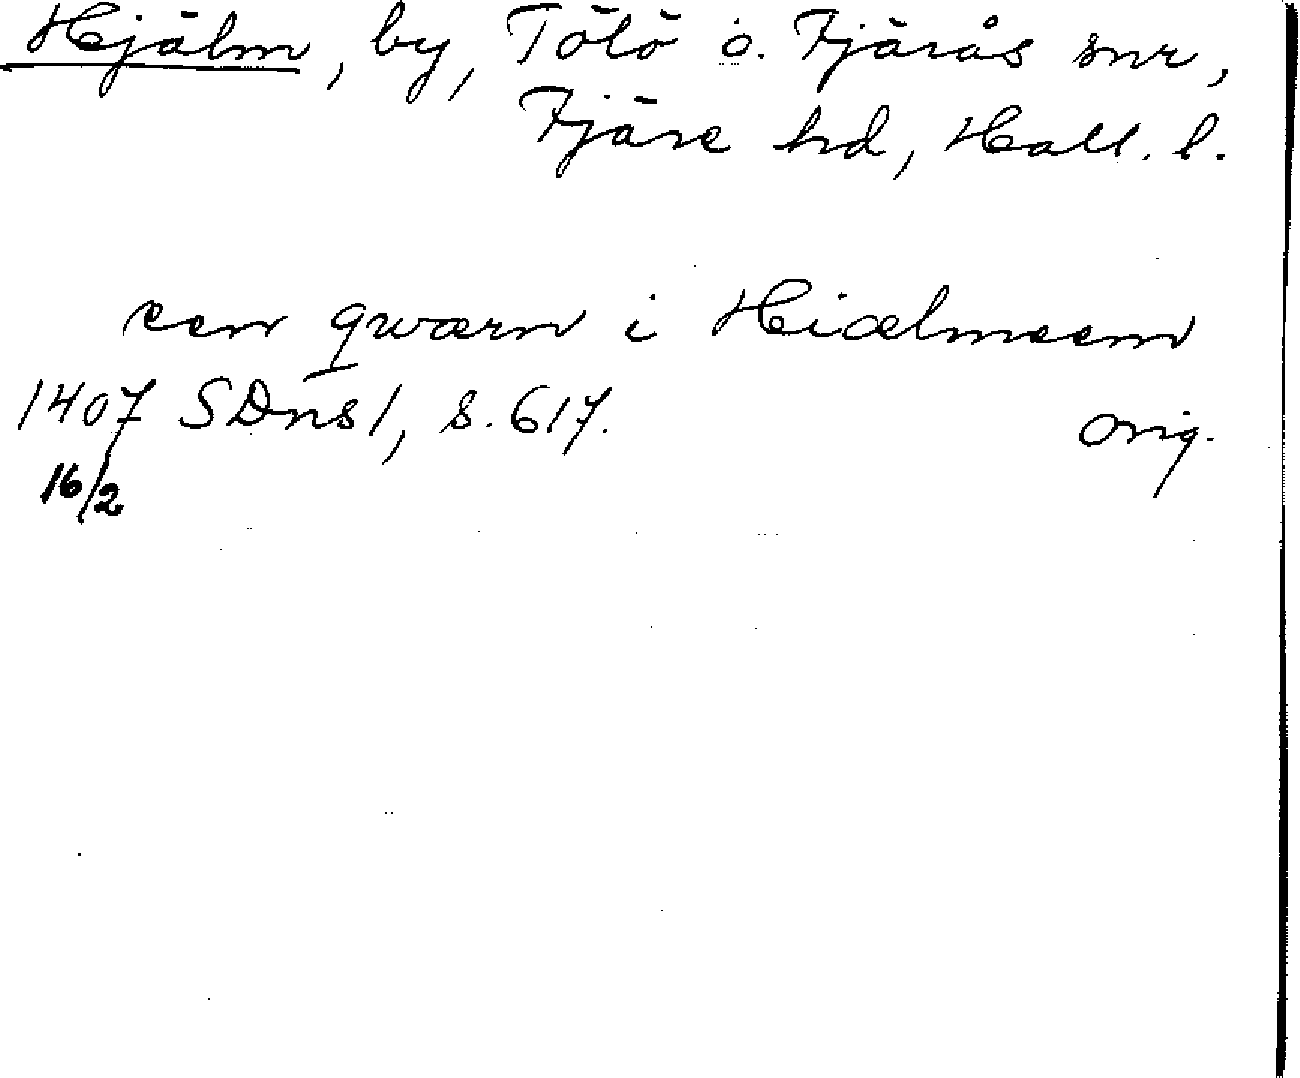 Hjälm, by, Tölö o. Fjärås snr,
Fjäre hd, Hall. l.
een qwærn i Hiælmeem
1407 SDns 1, s. 617. orig.
16/2